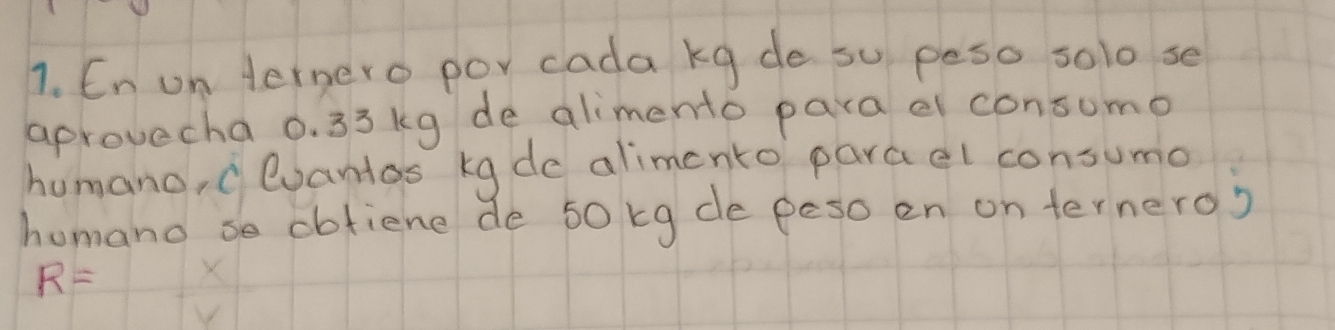 1. En un ternero por cada kg de su peso solo se
aprovecha 0.33 kg de alimento para el consumo
humano, ¿Cuantos kg de alimento para el consumo
humano se obtiene de 50 kg de peso en un ternero?
R=